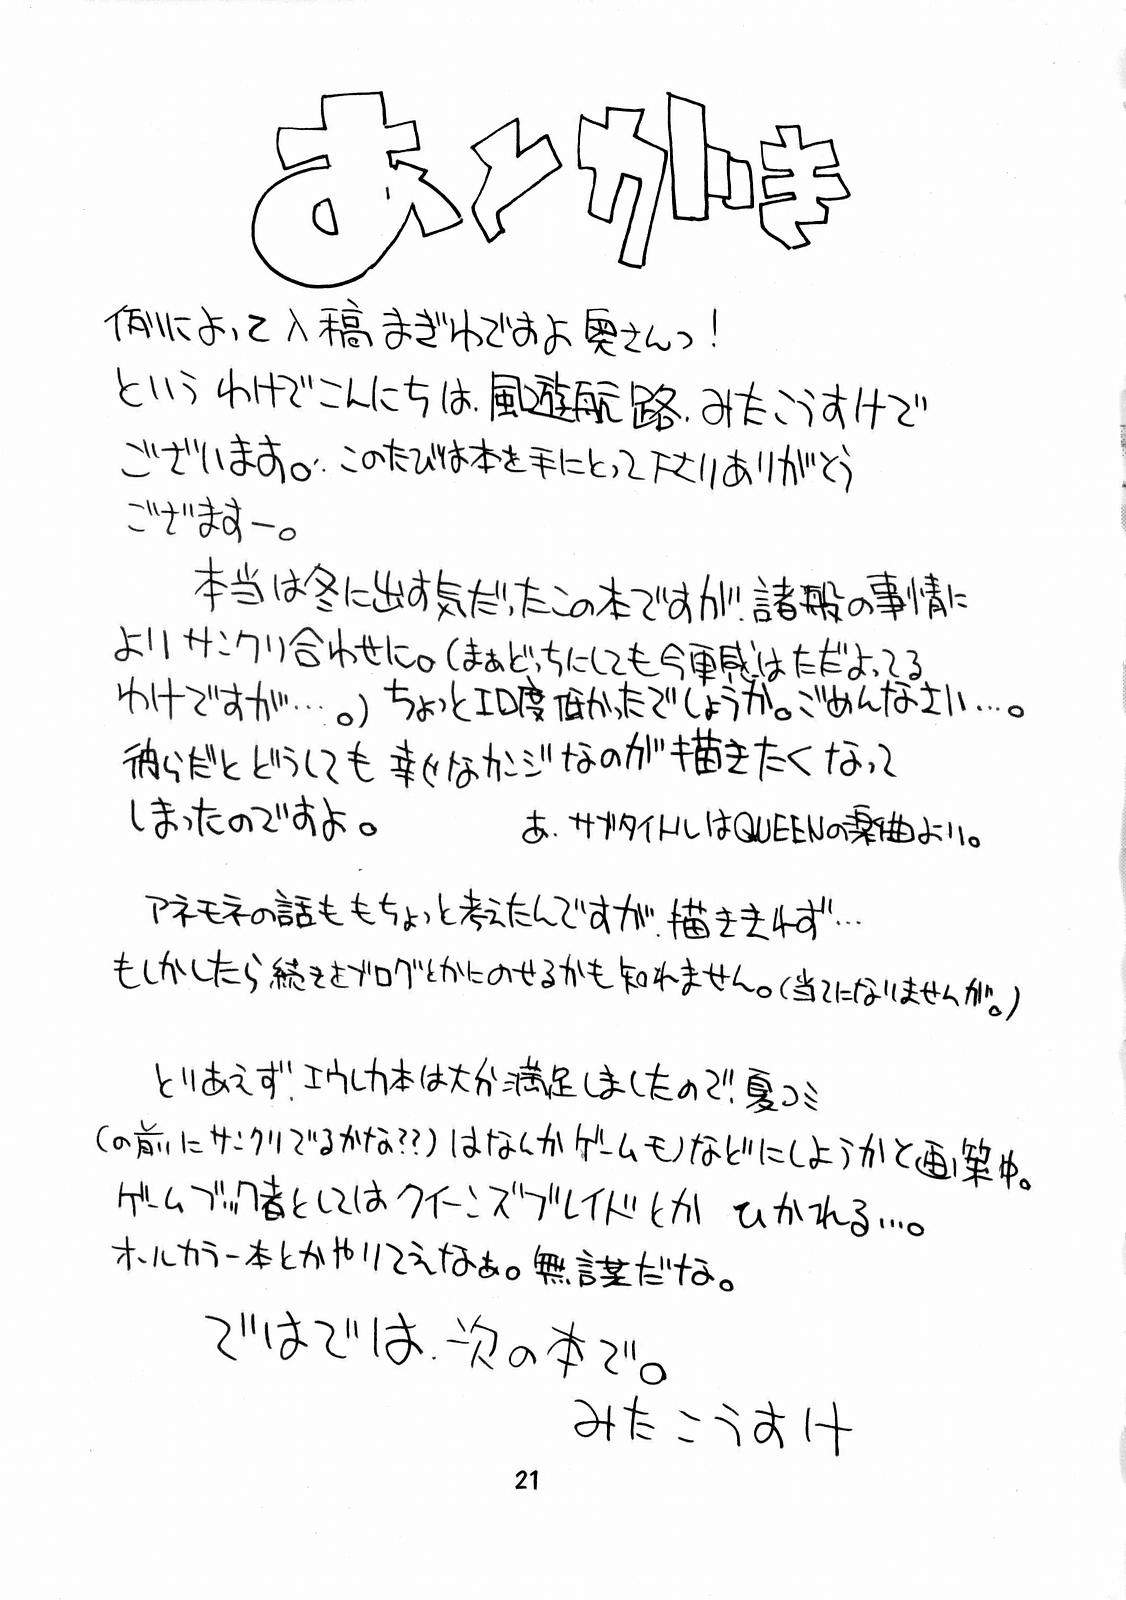 あとがき
例によって入稿まぎわですよ奥さんっ！
というわけでこんにちは、風遊航路、みたこうすけで
ございます。このたびは本を手にとって下さりありがとう
ござますー。
本当は冬に出す気だったこの本ですが、諸般の事情に
よりサンクリ合わせに。(まぁどっちにしても今更感はただよってる
わけですが…。)ちょっとエロ度低かったでしょうか。ごめんなさい…。
彼らだとどうしても幸せなカンジなのが描きたくなって
しまったのですよ。
あ、サブタイトルはQUEENの楽曲より。
アネモネの話ももちょっと考えたんですが、描ききれず…
もしかしたら続きをブログとかにのせるかも知れません。(当てになりませんが。)
とりあえず、エウレカ本は大分満足しましたので、夏コミ
(の前にサンクリでるかな??)はなんかゲームモノなどにしようかと画策中。
ゲームブック者としてはクイーンズブレイドとか ひかれる…。
オールカラー本とかやりてえなぁ。無謀だな。
ではでは、次の本で。
みたこうすけ
21